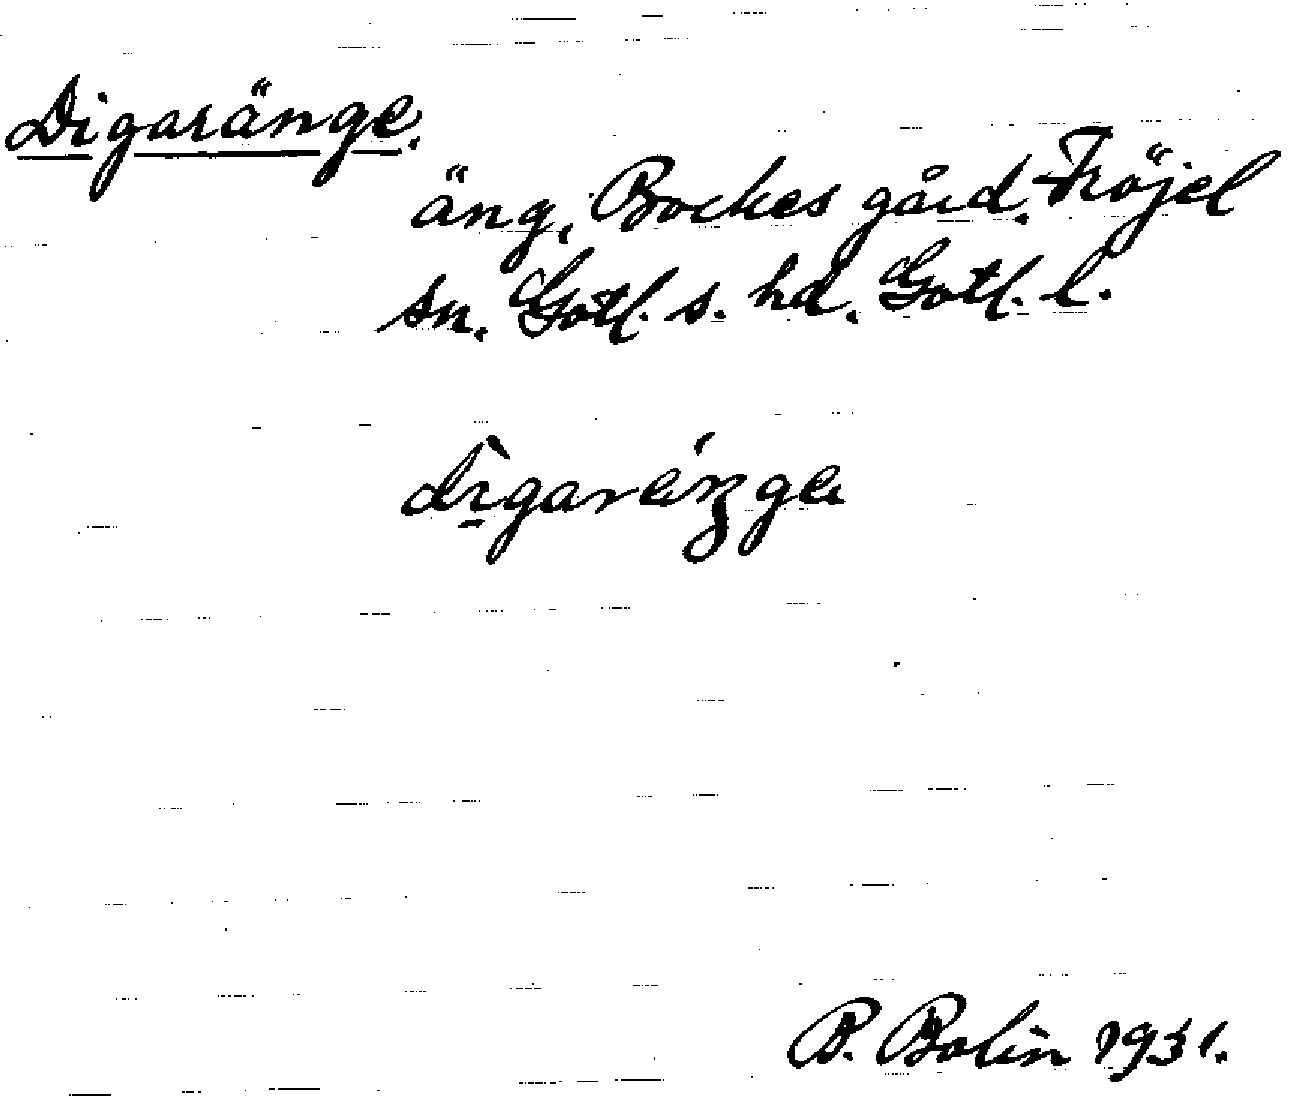 Digaränge.
äng, Bockes gård. Fröjel
sn. Gotl. s. hd. Gotl. l.
dì̱garéŋga
B. Bolin 1931.